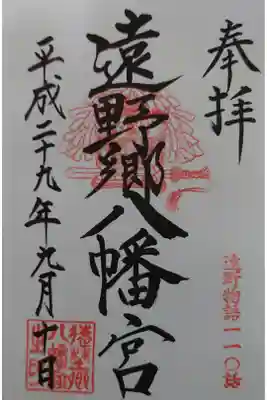 奉拝
遠野物語一一〇話
遠野郷八幡宮
平成二十九年九月十日